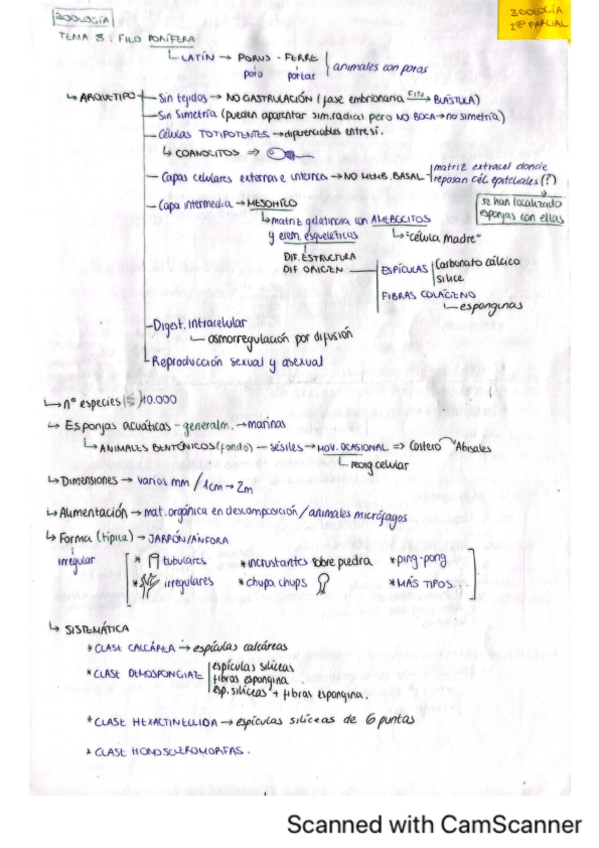 ZOOLOGÍA
ZOOLOGÍA
2º PARCIAL
TEMA 8: FILO PORÍFERA
LATÍN → PORUS - FERRE
poro portar
animales con poros
ARQUETIPO
Sin tejidos → NO GASTRULACIÓN (fase embrionaria FIN → BLÁSTULA)
Sin Simetría (pueden aparentar sim. radial pero NO BOCA → no simetría)
Células TOTIPOTENTES → diferenciables entre sí.
COANOCITOS →
Capas celulares externas e internas → NO MEMB. BASAL
matriz extracel donde
reposan cél. epiteliales (?)
se han localizado
esponjas con ellas
Capa intermedia → MESOHILO
matriz gelatinosa con AMEBOCITOS
y elem. esqueléticos
"célula madre"
DIF. ESTRUCTURA
DIF ORIGEN
ESPÍCULAS
Carbonato cálcico
Sílice
FIBRAS COLÁGENO
esponginas
Digest. intracelular
osmorregulación por difusión
Reproducción sexual y asexual
nº especies (≈) 10.000
Esponjas acuáticas - generalm. → marinas
ANIMALES BENTÓNICOS (fondo) - sésiles → MOV. OCASIONAL => Costero Abisales
reorg celular
Dimensiones → varios mm / 1cm → 2m
Alimentación → mat. orgánica en descomposición / animales micrófagos
Forma (típica) → JARRÓN/ÁNFORA
irregular
* tubulares
* incrustantes sobre piedra
* ping-pong
* irregulares
* chupa chups
* MÁS TIPOS...
SISTEMÁTICA
* CLASE CALCÁREA → espículas calcáreas
* CLASE DEMOSPONGIAE
espículas silíceas
fibras espongina
esp. silíceas + fibras espongina.
* CLASE HEXACTINELLIDA → espículas silíceas de 6 puntas
* CLASE HOMOSCLEROMORFAS.
Scanned with CamScanner